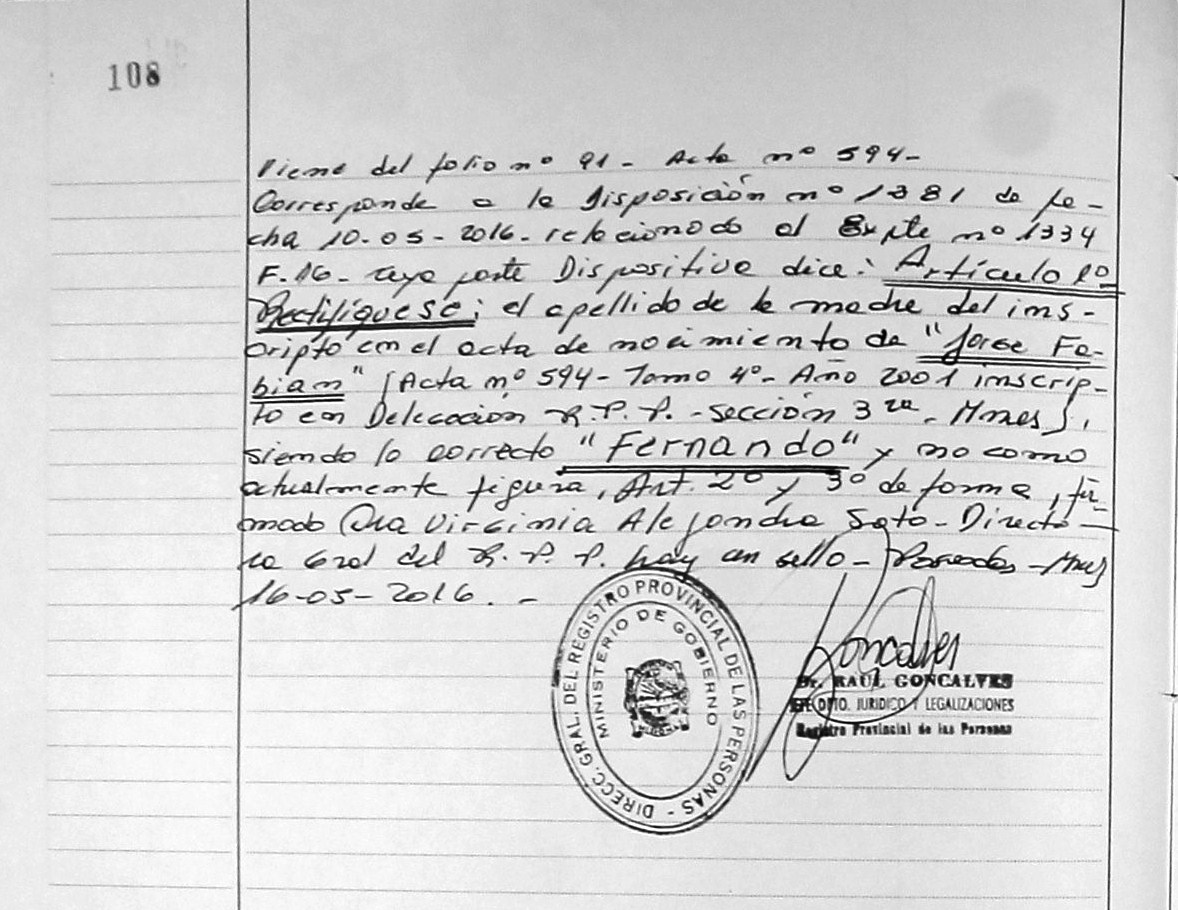 108
Viene del folio nº 91 - Acta nº 594 -
Corresponde a la Disposición nº 1381 de fe-
cha 10-05-2016. relacionado al Expte nº 1334
F. 16 - cuya parte Dispositiva dice: Artículo 1º
Rectifíquese; el apellido de la madre del ins-
cripto en el acta de nacimiento de "Jorge Fa-
bian" (Acta nº 594 - Tomo 4º - Año 2001 inscrip-
to en Delegación R.P.P. - sección 3ra. Mnes),
siendo lo correcto "Fernando" y no como
actualmente figura, Art. 2º y 3º de forma, fir-
mado Dra Virginia Alejandra Soto - Directo-
ra Gral del R.P.P. hay un sello - Posadas - Mnes
16-05-2016. -
DIRECC. GRAL. DEL REGISTRO PROVINCIAL DE LAS PERSONAS -
MINISTERIO DE GOBIERNO
Goncalves
Dr. RAUL GONCALVES
JEFE DPTO. JURIDICO Y LEGALIZACIONES
Registro Provincial de las Personas